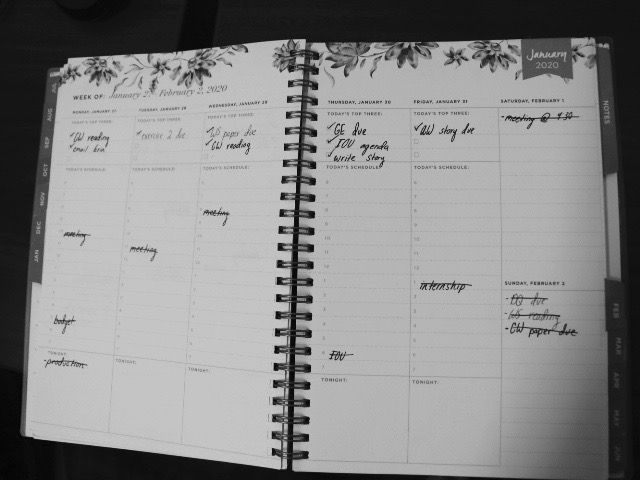 January
2020
WEEK OF: January 27 - February 2, 2020
MONDAY, JANUARY 27
TODAY'S TOP THREE:
GW reading
email Erin
TODAY'S SCHEDULE:
meeting
budget
TONIGHT:
production
TUESDAY, JANUARY 28
TODAY'S TOP THREE:
exercise 2 due
TODAY'S SCHEDULE:
meeting
TONIGHT:
WEDNESDAY, JANUARY 29
TODAY'S TOP THREE:
WS paper due
GW reading
TODAY'S SCHEDULE:
meeting
TONIGHT:
THURSDAY, JANUARY 30
TODAY'S TOP THREE:
GE due
IOU agenda
write story
TODAY'S SCHEDULE:
IOU
TONIGHT:
FRIDAY, JANUARY 31
TODAY'S TOP THREE:
QW story due
TODAY'S SCHEDULE:
internship
TONIGHT:
SATURDAY, FEBRUARY 1
- meeting @ 9:30
SUNDAY, FEBRUARY 2
- DQ due
- WS reading
- GW paper due
JUL
AUG
SEP
OCT
NOV
DEC
JAN
NOTES
FEB
MAR
APR
MAY
JUN